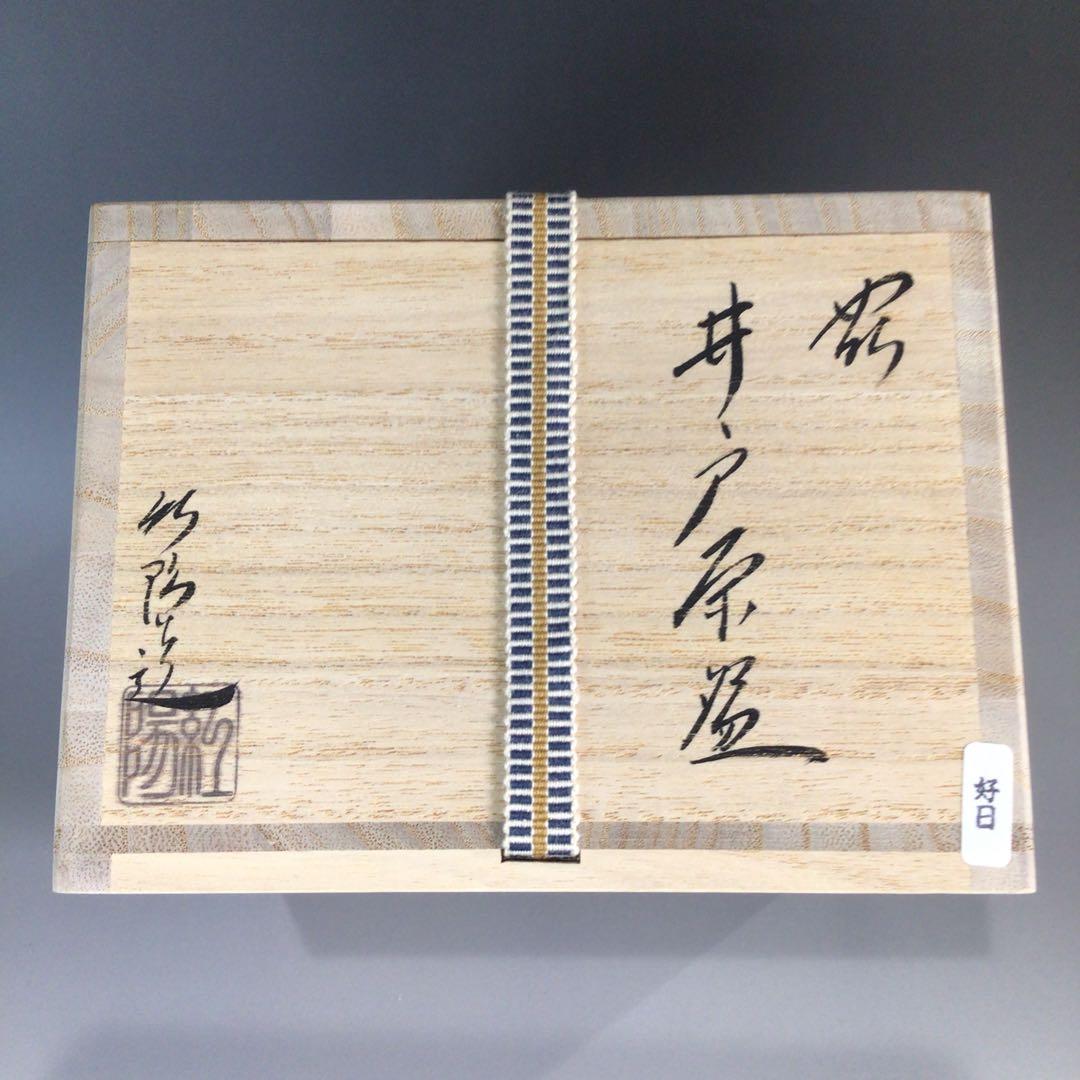 井戸茶盌
紅陽造
紅陽
好日